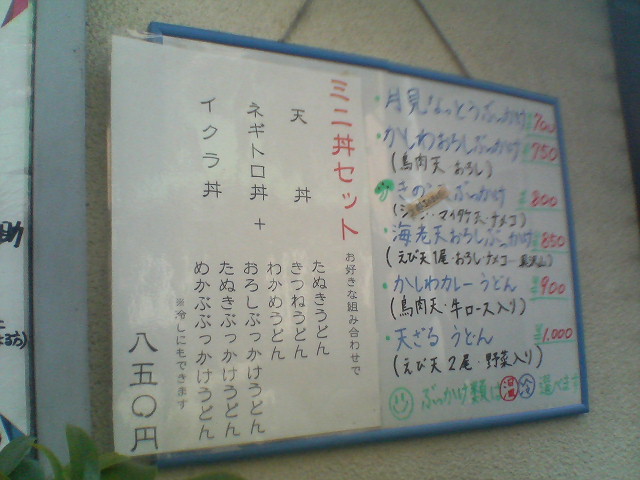 ミニ丼セット
お好きな組み合わせで
天丼
ネギトロ丼
イクラ丼
+
たぬきうどん
きつねうどん
わかめうどん
おろしぶっかけうどん
たぬきぶっかけうどん
めかぶぶっかけうどん
※冷しにもできます
八五〇円
・月見なっとうぶっかけ ¥700
・かしわおろしぶっかけ ¥750
(鳥肉天 おろし)
ぶっかけ ¥800
マイタケ天・ナメコ)
・海老天おろしぶっかけ ¥850
(えび天1尾・おろし・ナメコ
・かしわカレーうどん ¥900
(鳥肉天・牛ロース入り)
・天ざるうどん ¥1,000
(えび天2尾・野菜入り)
ぶっかけ類は温冷選べます
助